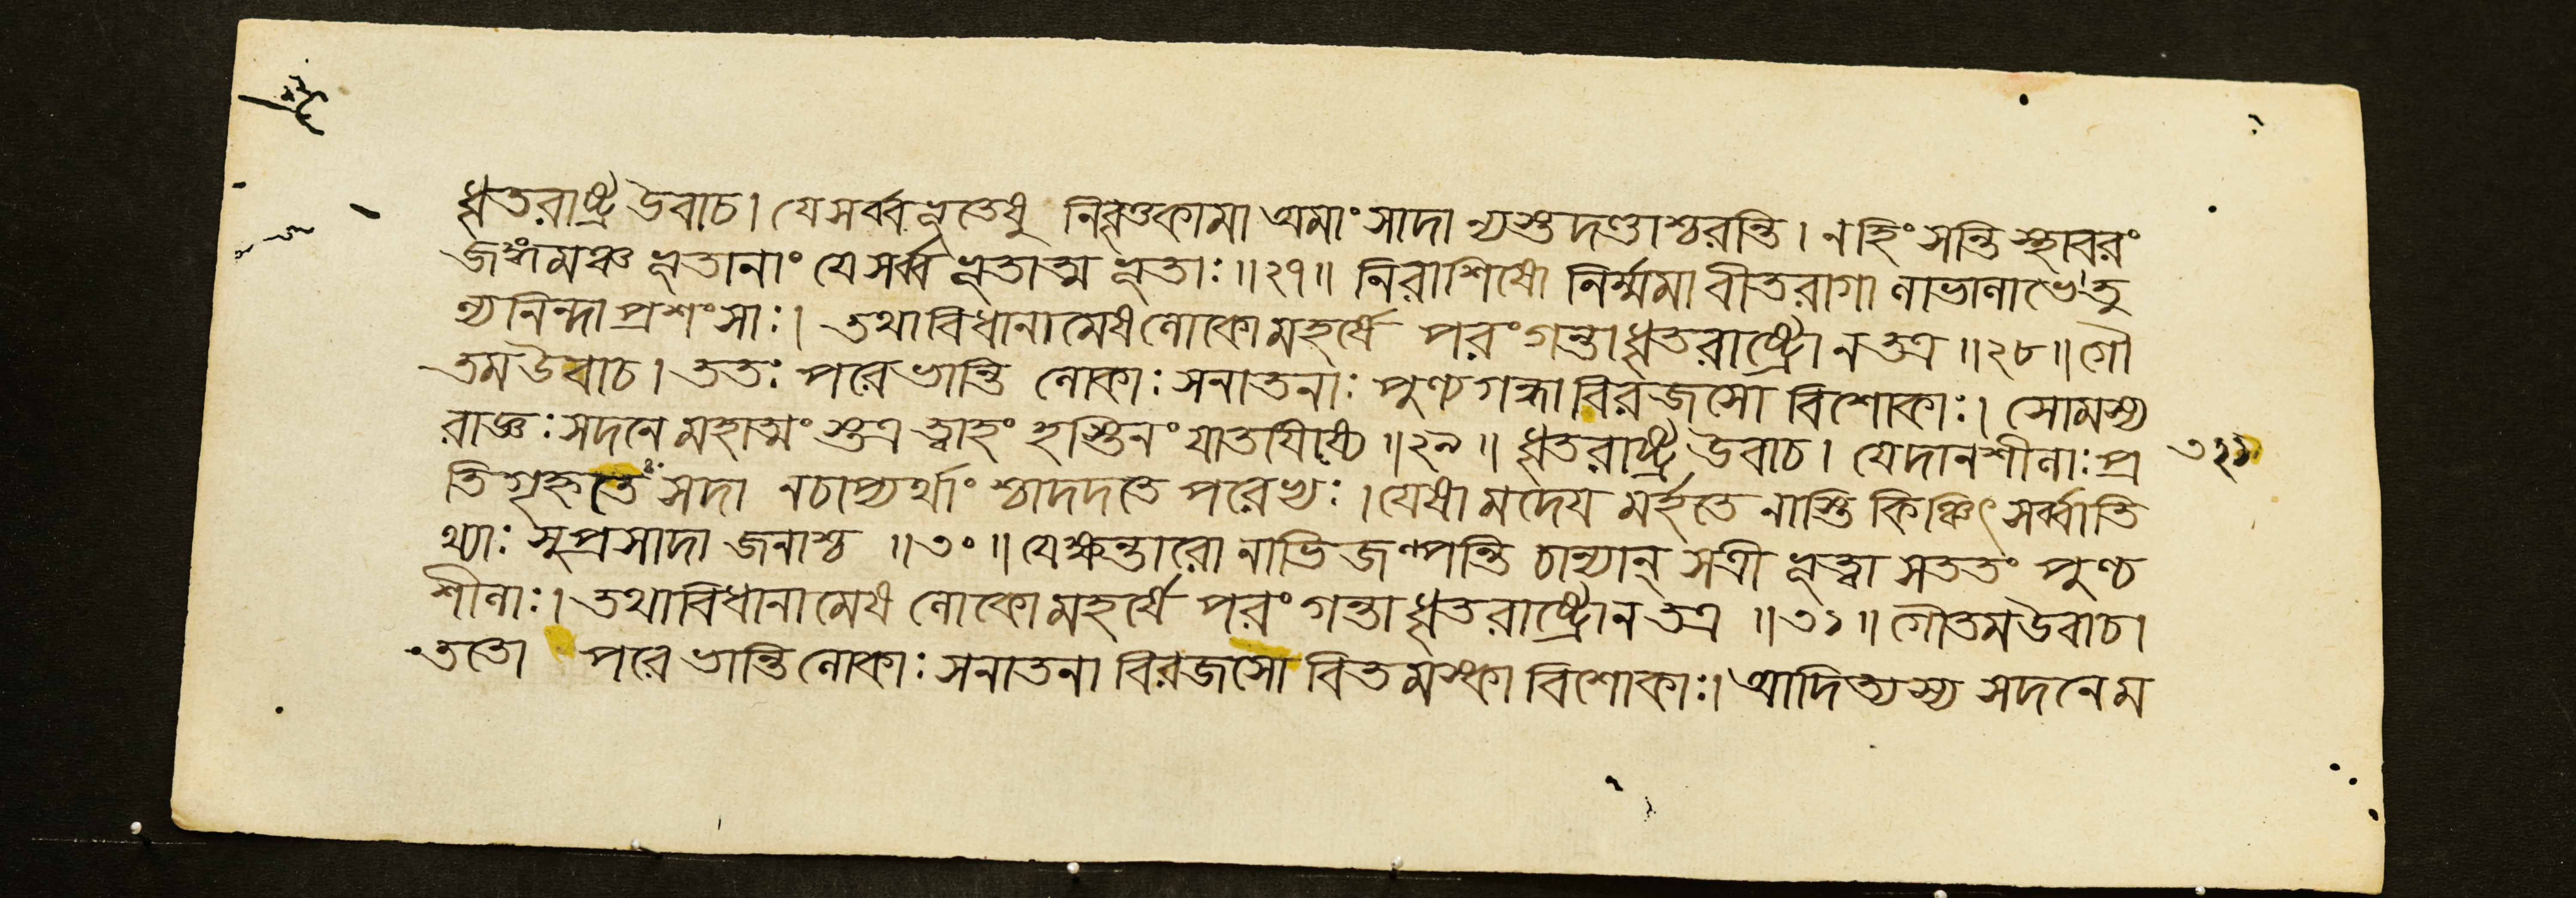 ধৃতরাষ্ট্র উবাচ। যে সর্ব্বভূতেষু নিবৃত্তকামা অমাংসাদা ন্যস্তদণ্ডাশ্চরন্তি। ন হিংসন্তি স্থাবরং
জঙ্গমঞ্চ ভূতানাং যে সর্ব্বভূতাত্মভূতাঃ॥২৭॥ নিরাশিষো নির্ম্মমা বীতরাগা লাভালাভে তু
ল্যনিন্দাপ্রশংসাঃ। তথাবিধানামেষ লোকো মহর্ষে পরং গন্তা ধৃতরাষ্ট্রো ন তত্র॥২৮॥ গৌ
তম উবাচ। ততঃ পরে ভান্তি লোকাঃ সনাতনাঃ পুণ্যগন্ধা বিরজসো বিশোকাঃ। সোমস্য
রাজ্ঞঃ সদনে মহাত্মং স্তত্র ত্বাহং হস্তিনং যাতয়িষ্যে॥২৯॥ ধৃতরাষ্ট্র উবাচ। যে দানশীলাঃ প্র
তিগৃহ্নতে সদা ন চাপ্যর্থাং শ্চাদদতে পরেভ্যঃ। যেষামদেয়মর্হতে নাস্তি কিঞ্চিৎ সর্ব্বাতি
থ্যাঃ সুপ্রসাদা জনাশ্চ॥৩০॥ যে ক্ষন্তারো নাভিজল্পন্তি চান্যান্ সত্রীভূত্বা সততং পুণ্য
শীলাঃ। তথাবিধানামেষ লোকো মহর্ষে পরং গন্তা ধৃতরাষ্ট্রো ন তত্র॥৩১॥ গৌতম উবাচ।
ততো পরে ভান্তি লোকাঃ সনাতনা বিরজসো বিতমস্কা বিশোকাঃ। আদিত্যস্য সদনে ম